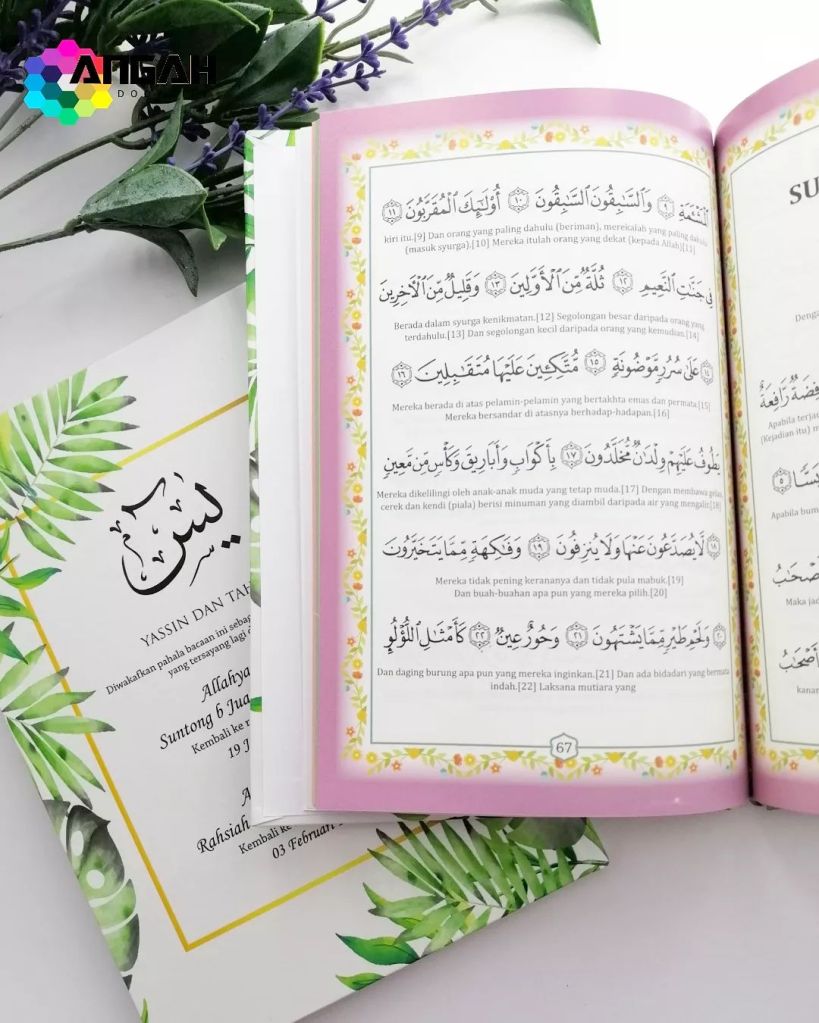 ANGAH
ٱلْمَشْـَٔمَةِ ٩ وَٱلسَّـٰبِقُونَ ٱلسَّـٰبِقُونَ ١٠ أُو۟لَـٰٓئِكَ ٱلْمُقَرَّبُونَ ١١
kiri itu.[9] Dan orang yang paling dahulu (beriman), merekalah yang paling dahulu
(masuk syurga).[10] Mereka itulah orang yang dekat (kepada Allah)[11]
فِى جَنَّـٰتِ ٱلنَّعِيمِ ١٢ ثُلَّةٌ مِّنَ ٱلْأَوَّلِينَ ١٣ وَقَلِيلٌ مِّنَ ٱلْـَٔاخِرِينَ
Berada dalam syurga kenikmatan.[12] Segolongan besar daripada orang yang
terdahulu.[13] Dan segolongan kecil daripada orang yang kemudian.[14]
١٤ عَلَىٰ سُرُرٍ مَّوْضُونَةٍ ١٥ مُّتَّكِـِٔينَ عَلَيْهَا مُتَقَـٰبِلِينَ ١٦
Mereka berada di atas pelamin-pelamin yang bertakhta emas dan permata.[15]
Mereka bersandar di atasnya berhadap-hadapan.[16]
يَطُوفُ عَلَيْهِمْ وِلْدَٰنٌ مُّخَلَّدُونَ ١٧ بِأَكْوَابٍ وَأَبَارِيقَ وَكَأْسٍ مِّن مَّعِينٍ
Mereka dikelilingi oleh anak-anak muda yang tetap muda.[17] Dengan membawa gelas,
cerek dan kendi (piala) berisi minuman yang diambil daripada air yang mengalir.[18]
١٨ لَّا يُصَدَّعُونَ عَنْهَا وَلَا يُنزِفُونَ ١٩ وَفَـٰكِهَةٍ مِّمَّا يَتَخَيَّرُونَ
Mereka tidak pening kerananya dan tidak pula mabuk.[19]
Dan buah-buahan apa pun yang mereka pilih.[20]
٢٠ وَلَحْمِ طَيْرٍ مِّمَّا يَشْتَهُونَ ٢١ وَحُورٌ عِينٌ ٢٢ كَأَمْثَـٰلِ ٱللُّؤْلُؤِ
Dan daging burung apa pun yang mereka inginkan.[21] Dan ada bidadari yang bermata
indah.[22] Laksana mutiara yang
67
SU
خَافِضَةٌ رَّافِعَةٌ
Apabila terja
(Kejadian itu) m
٥
Apabila bum
Maka jad
kanan
يس
YASSIN DAN TAH
Diwakafkan pahala bacaan ini sebag
yang tersayang lagi d
Allahya
Suntong b Jua
Kembali ke r
19 J
A
Rahsiah
Kembali ke
03 Februari